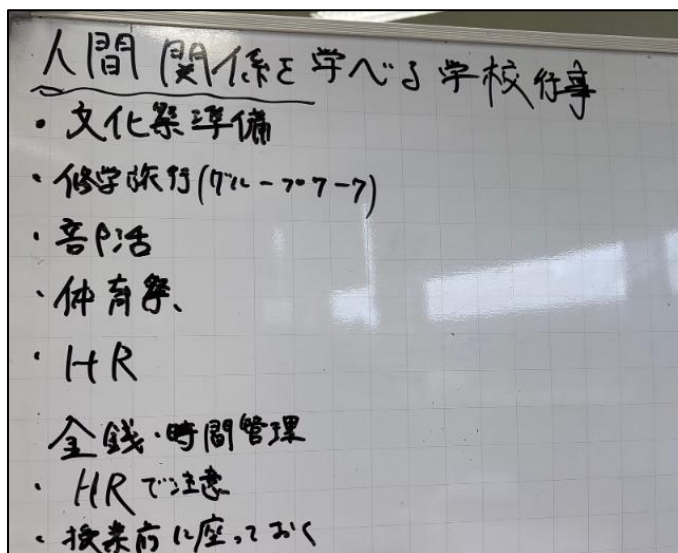 人間関係を学べる学校行事
・文化祭準備
・修学旅行(グループワーク)
・部活
・体育祭、
・HR
金銭・時間管理
・HRで注意
・授業前に座っておく